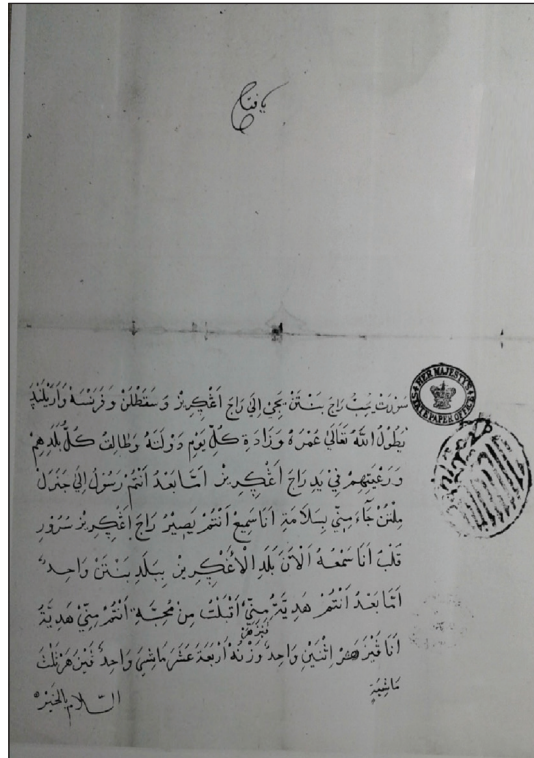 يا فتاح
HER MAJESTY'S STATE PAPER OFFICE
سورت راج بنتن يجي إلى راج اغكريز وسقطلن وفرنسه
يطول الله تعالى عمره وزادة كل يوم دولته وطالت كل بلدهم
ورعيتهم في يد راج اغكريز امّا بعد انتم رسول إلى جنرل
ملتن جاء مني بسلامة انا سميع انتم يصير راج اغكريز سرور
قلب انا سمعه الآن بلد الاغكريز ببلد بنتن واحد
امّا بعد انتم هدية مني اقبلت من محبة انتم مني هدية
انا اثنين واحد وزنه اربعة عشر ماشي واحد ثلث
ماشية
السلام بالخير